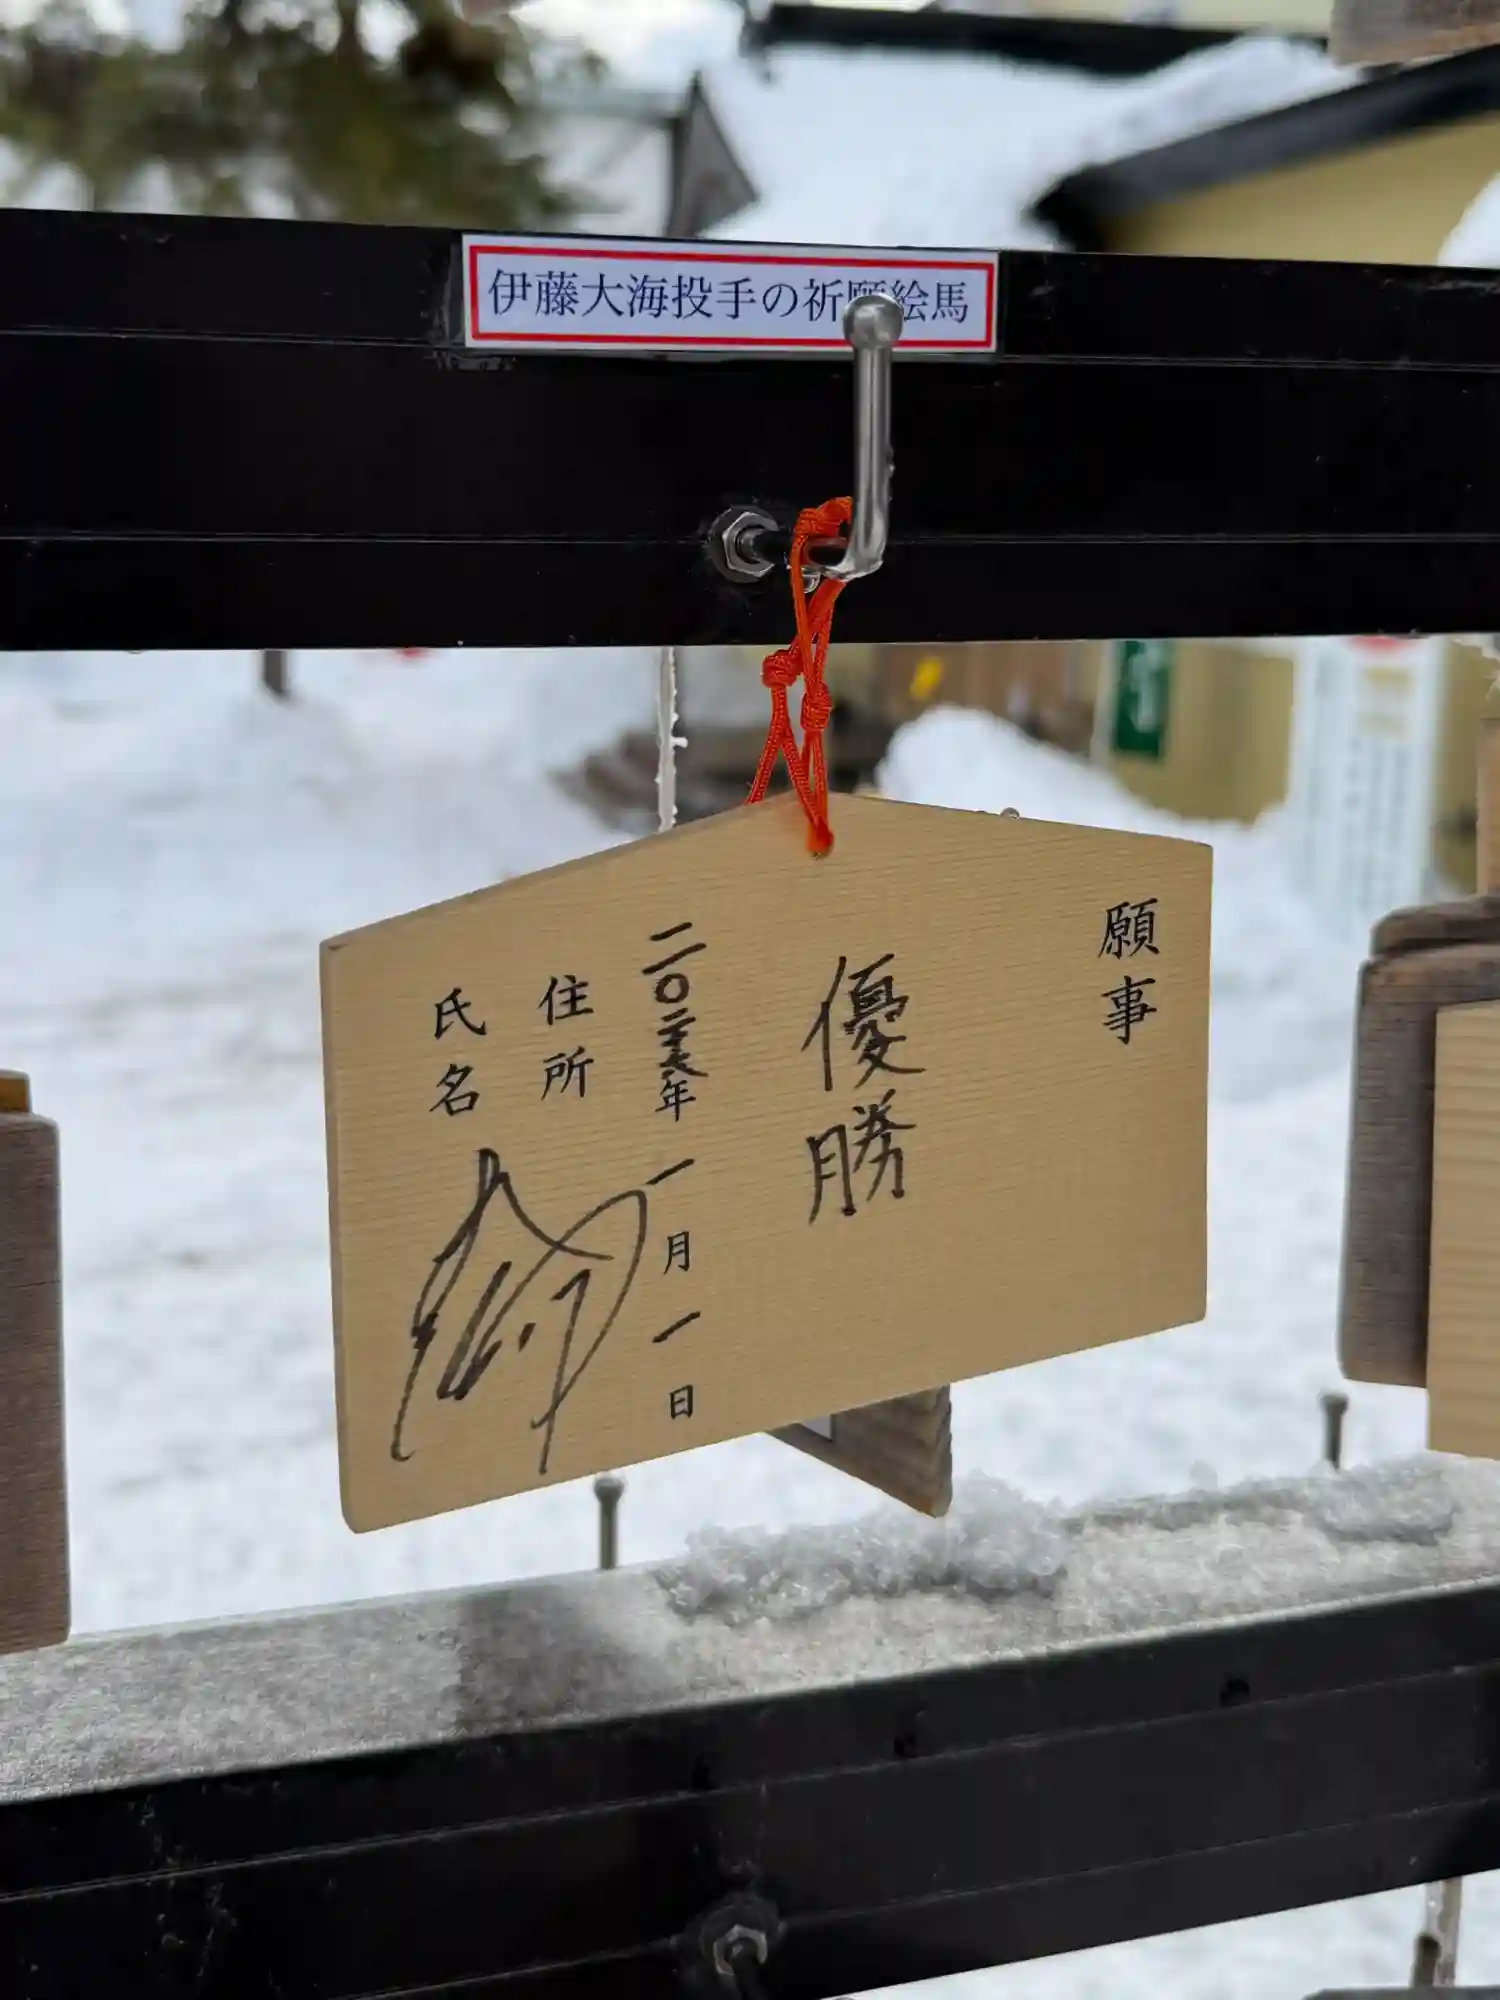 伊藤大海投手の祈願絵馬
願事
優勝
年一月一日
住所
氏名